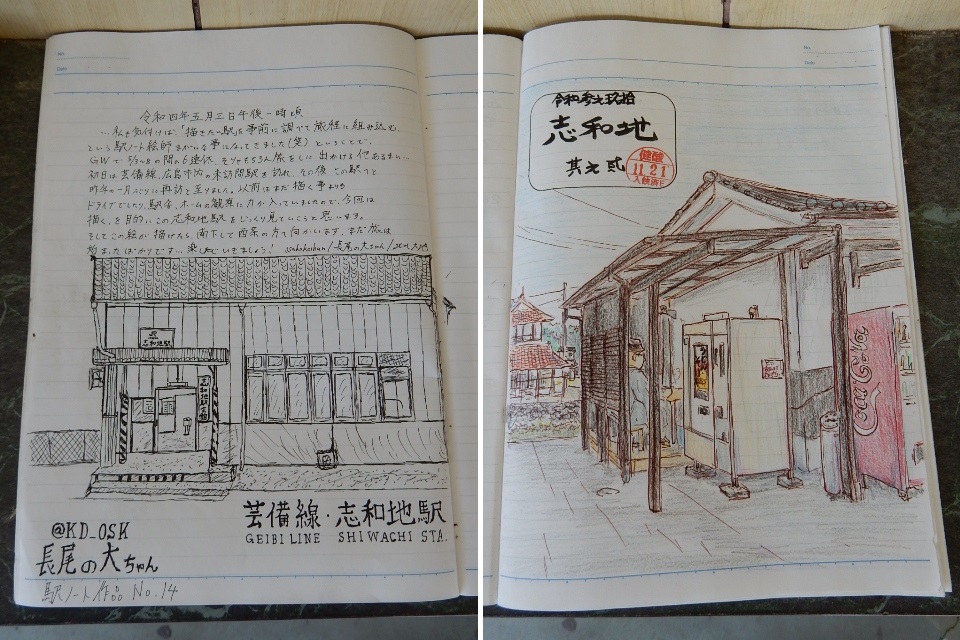 令和四年五月三日午後一時頃
…私も気付けば「描きたい駅を事前に調べて旅程に組み込む」
という駅ノート絵師まがいな事になってきました(笑)ということで、
GWで5/3〜8の間の6連休、をもちろん旅をしに出かける他あるまい…
初日は芸備線、広島市内の未訪問駅を訪れ、その後、この駅へと
昨年 再訪と至りました。以前はまだ描く事よりも
ドライブでしたり、駅舎、ホームの観察に力が入っていましたので、今回は
描く、を目的にこの志和地駅をじっくり見ていこうと思います。
そしてこの絵が描けたら、南下して西条の方へ向かいます。まだ旅は
始まったばかりです… 楽しんでいきましょう! /長尾の大ちゃん/
志和地駅
@KD_OSK
長尾の大ちゃん
駅ノート作品 No.14
芸備線・志和地駅
GEIBI LINE SHIWACHI STA.
No.
Date
志和地
其之弐
11.21